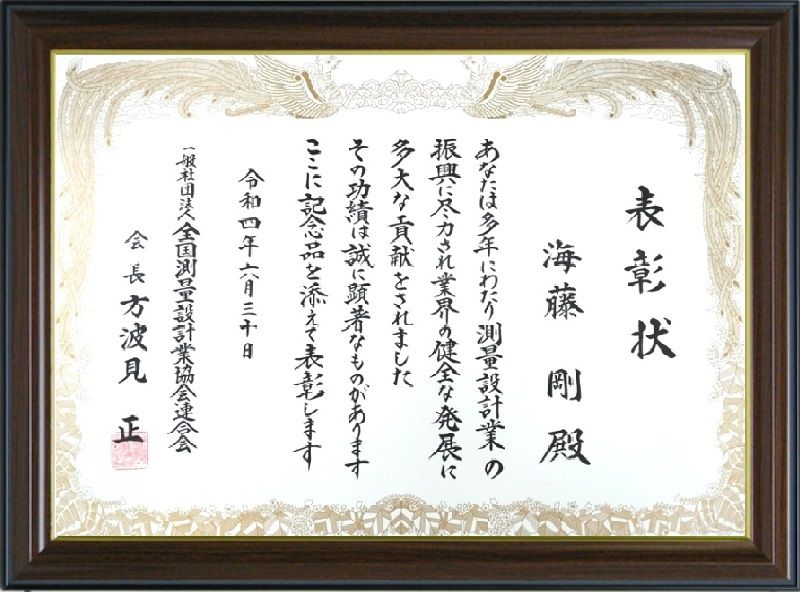 表彰状
海藤 剛 殿
あなたは多年にわたり測量設計業の
振興に尽力され業界の健全な発展に
多大な貢献をされました
その功績は誠に顕著なものがあります
ここに記念品を添えて表彰します
令和四年六月三十日
一般社団法人全国測量設計業協会連合会
会長 方波見 正